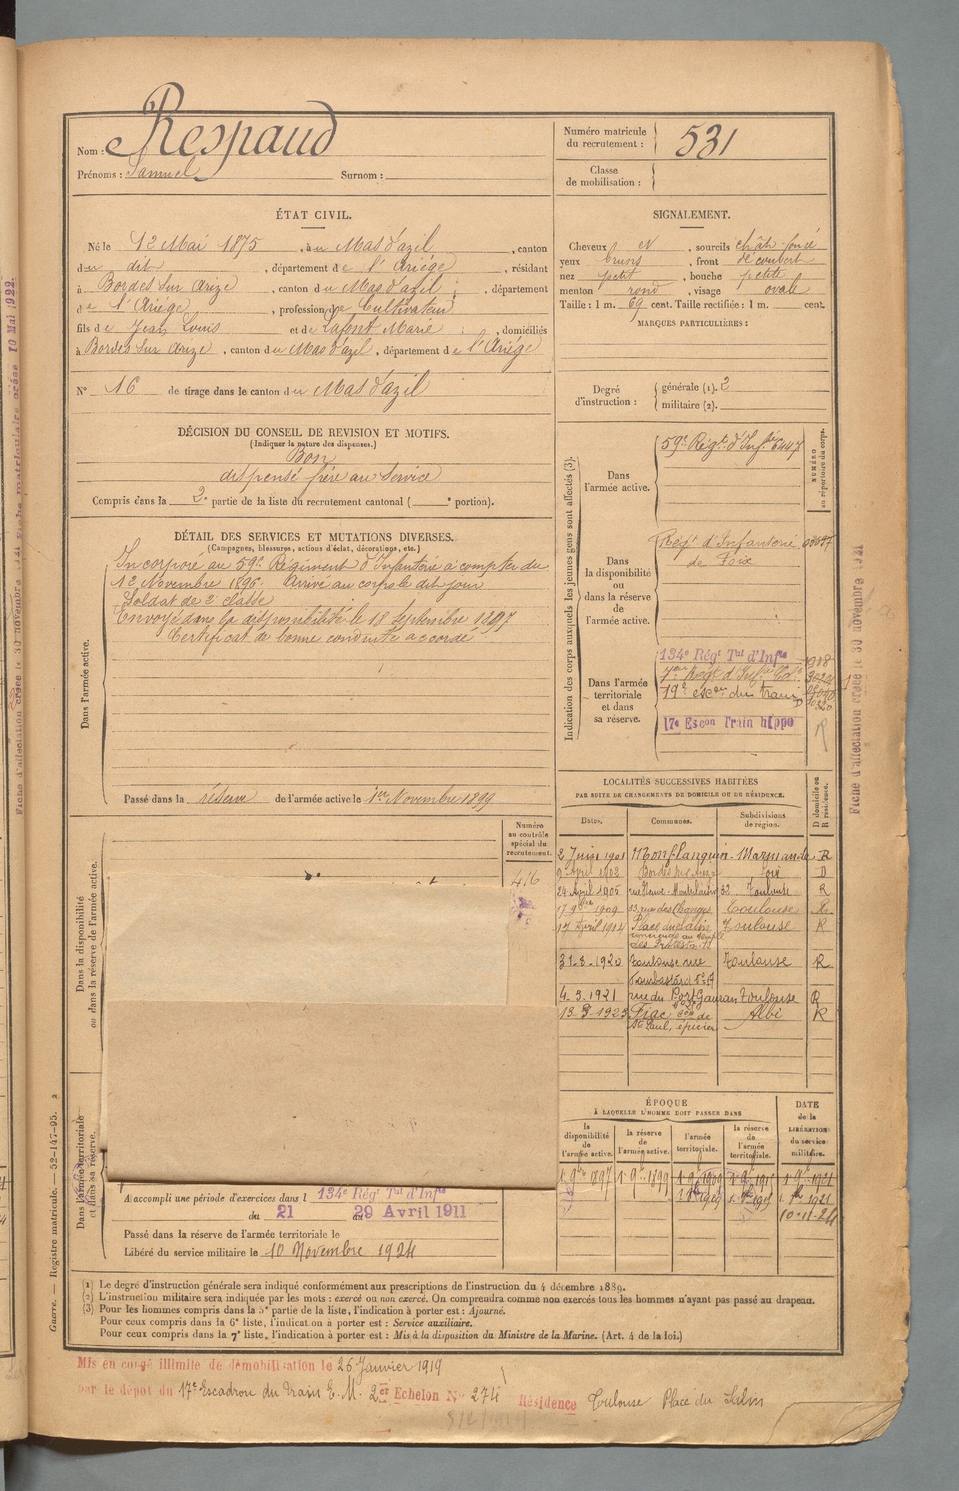 Nom : Respaud
Prénoms : Samuel Surnom :
Numéro matricule du recrutement : 531
Classe de mobilisation :
ÉTAT CIVIL.
Né le 12 Mai 1875, à u Mas d'azil, canton
du dit, département de l'Ariége, résidant
à Bordes sur Arize, canton du Mas d'azil, département
de l'Ariége, profession de Cultivateur
fils de Jean Louis et de Lafont Marie, domiciliés
à Bordes sur Arize, canton du Mas d'azil, département de l'Ariége
N° 16 de tirage dans le canton du Mas d'azil
SIGNALEMENT.
Cheveux et, sourcils chât foncé
yeux bruns, front découvert
nez petit, bouche petite
menton rond, visage ovale
Taille : 1 m. 69 cent. Taille rectifiée : 1 m. cent.
MARQUES PARTICULIÈRES :
Degré d'instruction : générale (1). 3
militaire (2).
DÉCISION DU CONSEIL DE REVISION ET MOTIFS.
(Indiquer la nature des dispenses.)
Bon
dispensé frère au service
Compris dans la 2e partie de la liste du recrutement cantonal ( e portion).
DÉTAIL DES SERVICES ET MUTATIONS DIVERSES.
(Campagnes, blessures, actions d'éclat, décorations, etc.)
Dans l'armée active.
Incorporé au 59e Régiment d'Infanterie à compter du
12 Novembre 1896. Arrivé au corps le dit jour
Soldat de 2e classe
Envoyé dans la disponibilité le 18 Septembre 1897
Certificat de bonne conduite accordé
Passé dans la réserve de l'armée active le 1er Novembre 1899
Indication des corps auxquels les jeunes gens sont affectés (3).
NUMÉRO au répertoire du corps.
Dans l'armée active.
59e Régt d'Infie 6447
Dans la disponibilité ou dans la réserve de l'armée active.
Régt d'Infanterie
de Foix
Dans l'armée territoriale et dans sa réserve.
134e Régt Tal d'Infie
19e escon du train
17e Escon Train hippo
R
LOCALITÉS SUCCESSIVES HABITÉES
PAR SUITE DE CHANGEMENTS DE DOMICILE OU DE RÉSIDENCE.
D domicile ou R résidence.
Dates. Communes. Subdivisions de région.
2 Juin 1901 Monflanquin Marmande R
9 Avril 1902 Bordes sur Arize Foix D
24 Avril 1905 32 Toulouse R
17 9bre 1909 33, rue des Changes Toulouse R
17 Avril 1912 Place du Salin Toulouse R
concierge au temple
des Protestants
31-8-1920 Toulouse rue Toulouse R
4-3-1921 rue du Port Garaud Toulouse R
13-3-1923 Fiac con de Albi R
St Paul, épicier
Numéro au contrôle spécial du recrutement.
416
Dans la disponibilité ou dans la réserve de l'armée active.
Dans l'armée territoriale et dans sa réserve.
ÉPOQUE
À LAQUELLE L'HOMME DOIT PASSER DANS
la disponibilité de l'armée active.
la réserve de l'armée active.
l'armée territoriale.
la réserve de l'armée territoriale.
DATE de la LIBÉRATION du service militaire.
1 9bre 1897 1 9bre 1899 1 9bre 1909
10-11-24
A accompli une période d'exercices dans l 134e Régt Tal d'Infie
du 21 au 29 Avril 1911
Passé dans la réserve de l'armée territoriale le
Libéré du service militaire le 10 Novembre 1924
(1) Le degré d'instruction générale sera indiqué conformément aux prescriptions de l'instruction du 4 décembre 1889.
(2) L'instruction militaire sera indiquée par les mots : exercé ou non exercé. On comprendra comme non exercés tous les hommes n'ayant pas passé au drapeau.
(3) Pour les hommes compris dans la 5e partie de la liste, l'indication à porter est : Ajourné.
Pour ceux compris dans la 6e liste, l'indication à porter est : Service auxiliaire.
Pour ceux compris dans la 7e liste, l'indication à porter est : Mis à la disposition du Ministre de la Marine. (Art. 4 de la loi.)
Mis en congé illimité de démobilisation le 26 Janvier 1919
par le dépôt du 17e Escadron du Train E. M. 2er Echelon No 274
Résidence Toulouse Place du Salin
Guerre. — Registre matricule. — 52-147-95. 2
Fiche d'affectation créée le 30 novembre 1921
Fiche matriculaire créée 10 Mai 1922